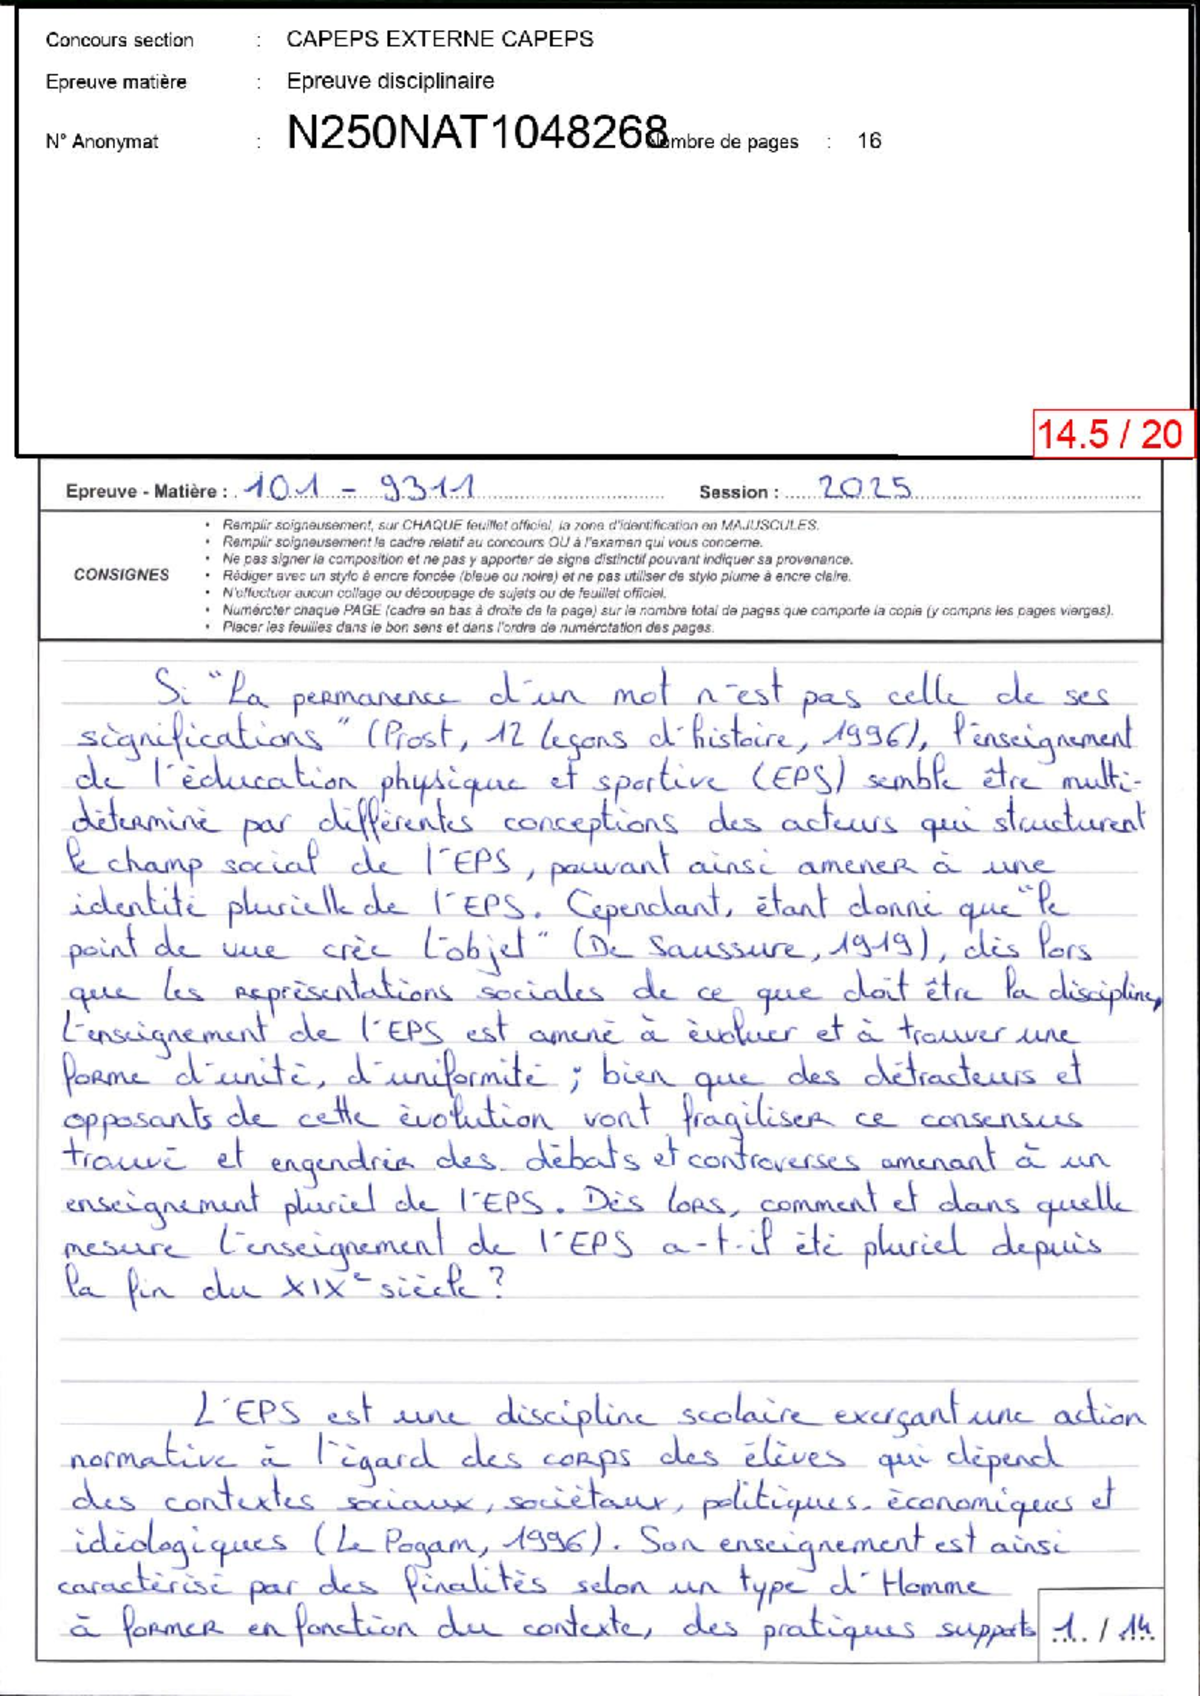 Concours section : CAPEPS EXTERNE CAPEPS
Epreuve matière : Epreuve disciplinaire
N° Anonymat : N250NAT1048268 Nombre de pages : 16
14.5 / 20
Epreuve - Matière : 101 - 9311 Session : 2025
CONSIGNES
• Remplir soigneusement, sur CHAQUE feuillet officiel, la zone d'identification en MAJUSCULES.
• Remplir soigneusement le cadre relatif au concours OU à l'examen qui vous concerne.
• Ne pas signer la composition et ne pas y apporter de signe distinctif pouvant indiquer sa provenance.
• Rédiger avec un stylo à encre foncée (bleue ou noire) et ne pas utiliser de stylo plume à encre claire.
• N'effectuer aucun collage ou découpage de sujets ou de feuillet officiel.
• Numéroter chaque PAGE (cadre en bas à droite de la page) sur le nombre total de pages que comporte la copie (y compris les pages vierges).
• Placer les feuilles dans le bon sens et dans l'ordre de numérotation des pages.
Si "La permanence d'un mot n'est pas celle de ses
significations" (Prost, 12 leçons d'histoire, 1996), l'enseignement
de l'éducation physique et sportive (EPS) semble être multi-
déterminé par différentes conceptions des acteurs qui structurent
le champ social de l'EPS, pouvant ainsi amener à une
identité plurielle de l'EPS. Cependant, étant donné que "le
point de vue crée l'objet" (De Saussure, 1919), dès lors
que les représentations sociales de ce que doit être la discipline,
l'enseignement de l'EPS est amené à évoluer et à trouver une
forme d'unité, d'uniformité ; bien que des détracteurs et
opposants de cette évolution vont fragiliser ce consensus
trouvé et engendrer des débats et controverses amenant à un
enseignement pluriel de l'EPS. Dès lors, comment et dans quelle
mesure l'enseignement de l'EPS a-t-il été pluriel depuis
la fin du XIXe siècle ?
L'EPS est une discipline scolaire exerçant une action
normative à l'égard des corps des élèves qui dépend
des contextes sociaux, sociétaux, politiques, économiques et
idéologiques (Le Pogam, 1996). Son enseignement est ainsi
caractérisé par des finalités selon un type d'Homme
à former en fonction du contexte, des pratiques supports
1 / 14